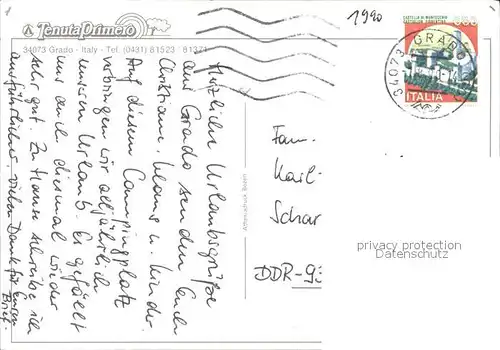 Tenuta Primero
34073 Grado - Italy - Tel. (0431) 81523 - 81371
1990
CASTELLO DI MONTECCHIO
CASTIGLION FIORENTINO
34073 GRADO
ITALIA
Herzliche Urlaubsgrüße
aus Grado senden Euch
Christiane, Klaus u. Kinder.
Auf diesem Campingplatz
verbringen wir alljährlich
unseren Urlaub. Es gefällt
uns auch diesmal wieder
sehr gut. Zu Hause schreibe ich
ausführlicher. Vielen Dank für Euren
Brief.
Fam.
Karl-
Schar
DDR-9
privacy protection
Datenschutz